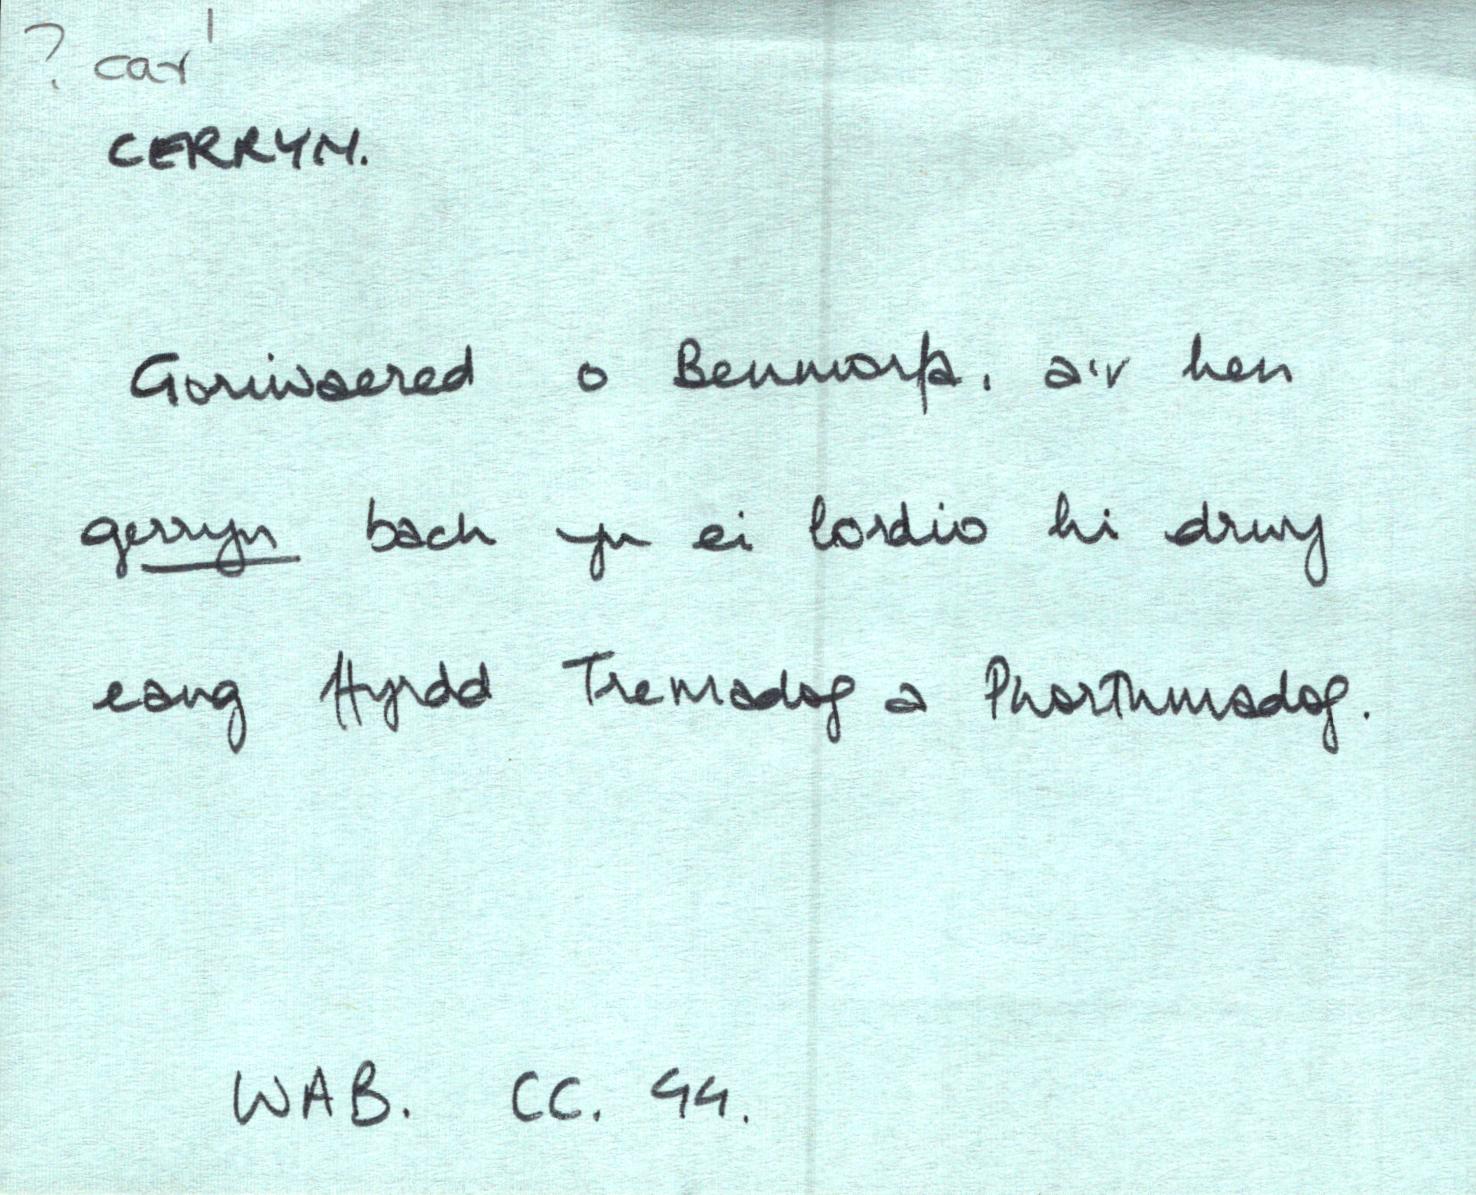 ? car'
CERRYN.
Goriwaered o Benmorfa, a'r hen
gerryn bach yn ei lordio hi drwy
eang ffyrdd Tremadog a Phorthmadog.
WAB. CC. 44.